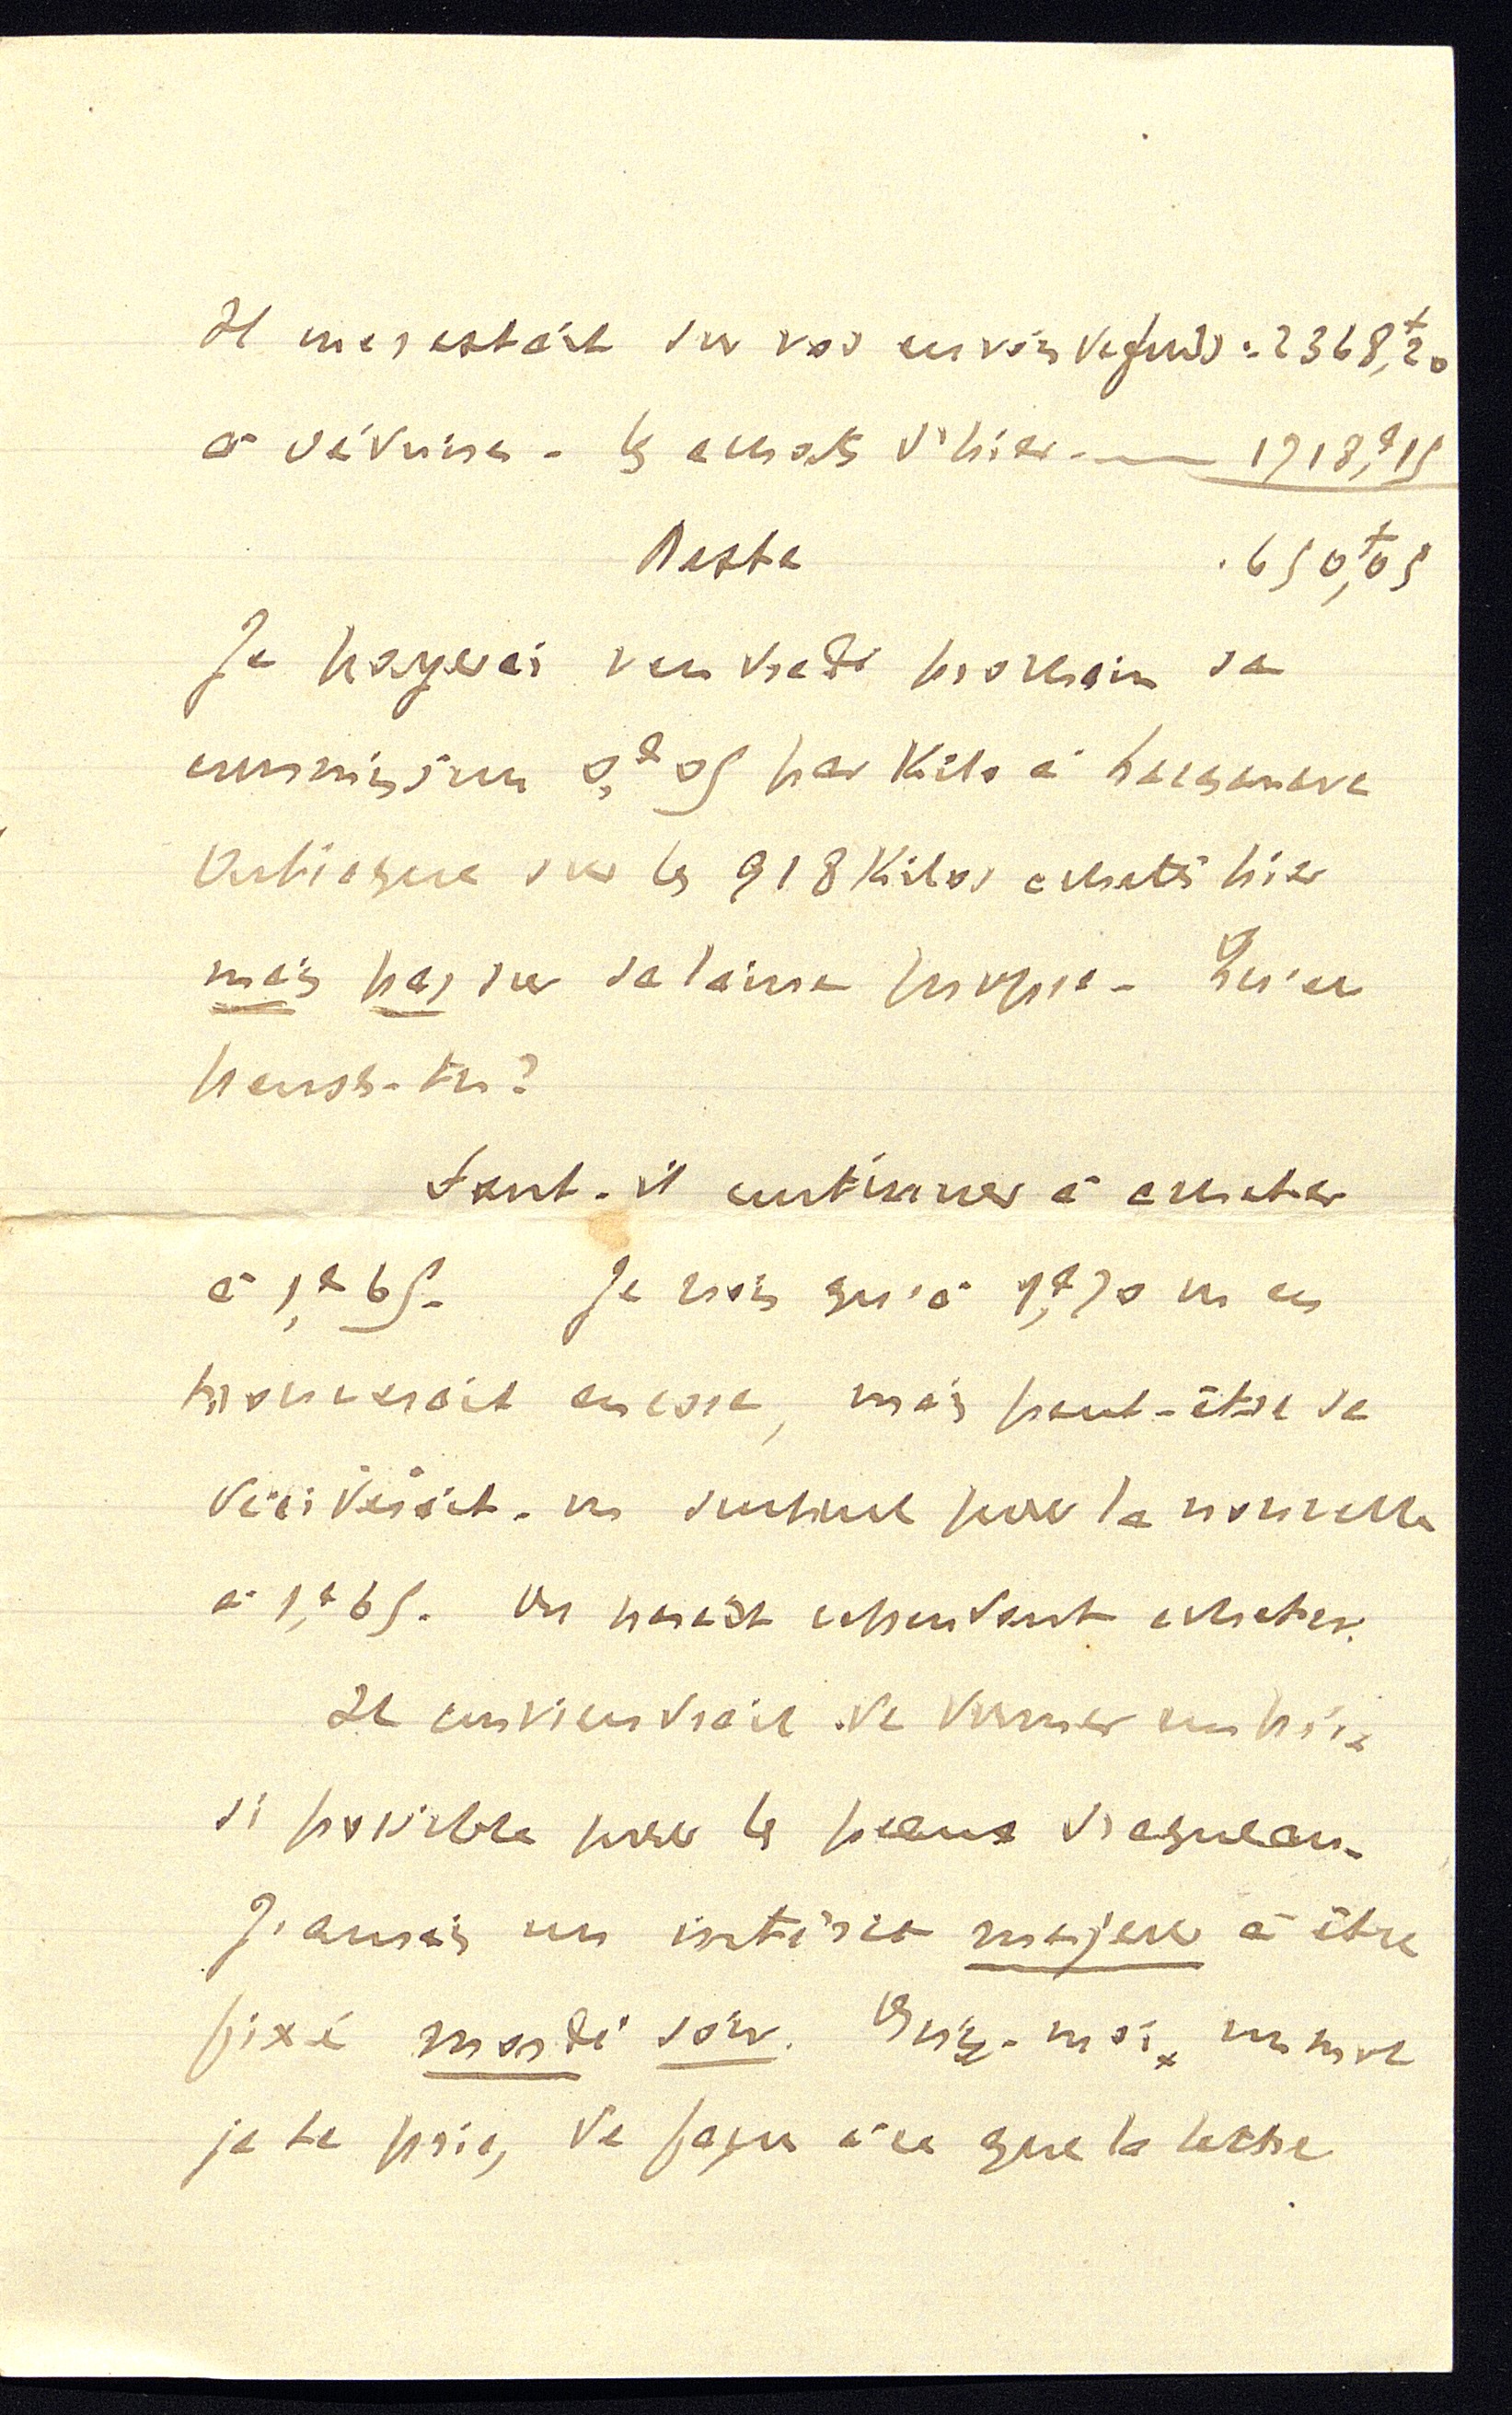 Il me restait sur vos envois de fonds : 2368,f20
à déduire - les achats d'hier - 1718,f15
Reste 650,f05
Je payerai vendredi prochain sa
commission 0,f05 par Kilo à
sur les 918 Kilos achetés hier
mais pas sur sa laine propre - Qu'en
penses-tu ?
Faut-il continuer à acheter
à 1,f65. Je crois qu'à 1,f70 on en
trouverait encore, mais peut-être se
déciderait-on surtout pour la nouvelle
à 1,f65. On paraît cependant acheter.
Il conviendrait de donner un prix
si possible pour les peaux d'agneau.
J'aurais un intérêt majeur à être
fixé mardi soir. Ecris-moi, comme
je te prie, de façon à ce que la lettre